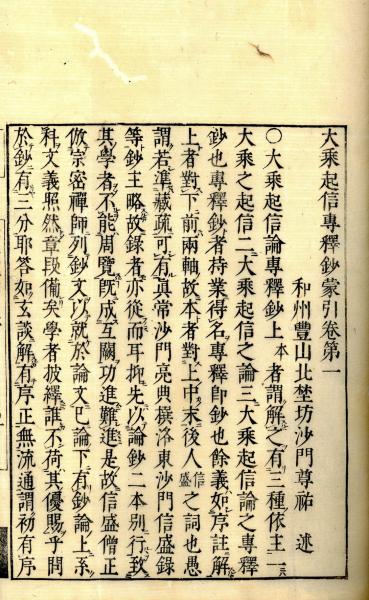 大乘起信專釋鈔蒙引卷第一
和州豐山北埜坊沙門尊祐　述
○大乘起信論專釋鈔上本者謂解之有三種依主一
大乘之起信二大乘起信之論三大乘起信論之專釋
鈔也專釋鈔者持業得名專釋即鈔也餘義如序註解
上者對下前兩軸故本者對上中末後人信盛之詞也愚
謂若準藏疏可有真常沙門亮典撰洛東沙門信盛錄
等鈔主略故錄者亦從而耳抑先以論鈔二本別行致
其學者不能周覽既成互關功進難進是故信盛僧正
倣宗密禪師列鈔文以就於論文已論下有鈔論上系
科文義照然章段備矣學者披繹誰不荷其優賜乎問
於鈔有三分耶答如玄談解有序正無流通謂初有序